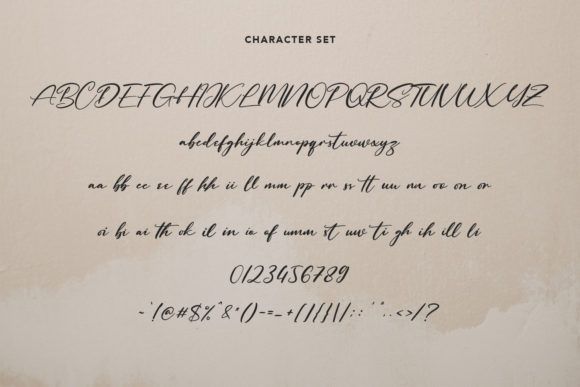 CHARACTER SET
ABCDEFGHIJKLMNOPQRSTUVWXYZ
abcdefghijklmnopqrstuvwxyz
aa bb cc ee ff hh ii ll mm pp rr ss tt uu nn oo on or
oi bi ai th ok il in io of umm st uw ti gh ih ill li
0123456789
~`!@#$%^&*()-=_+{}[]\|;:'"°,.<>/?